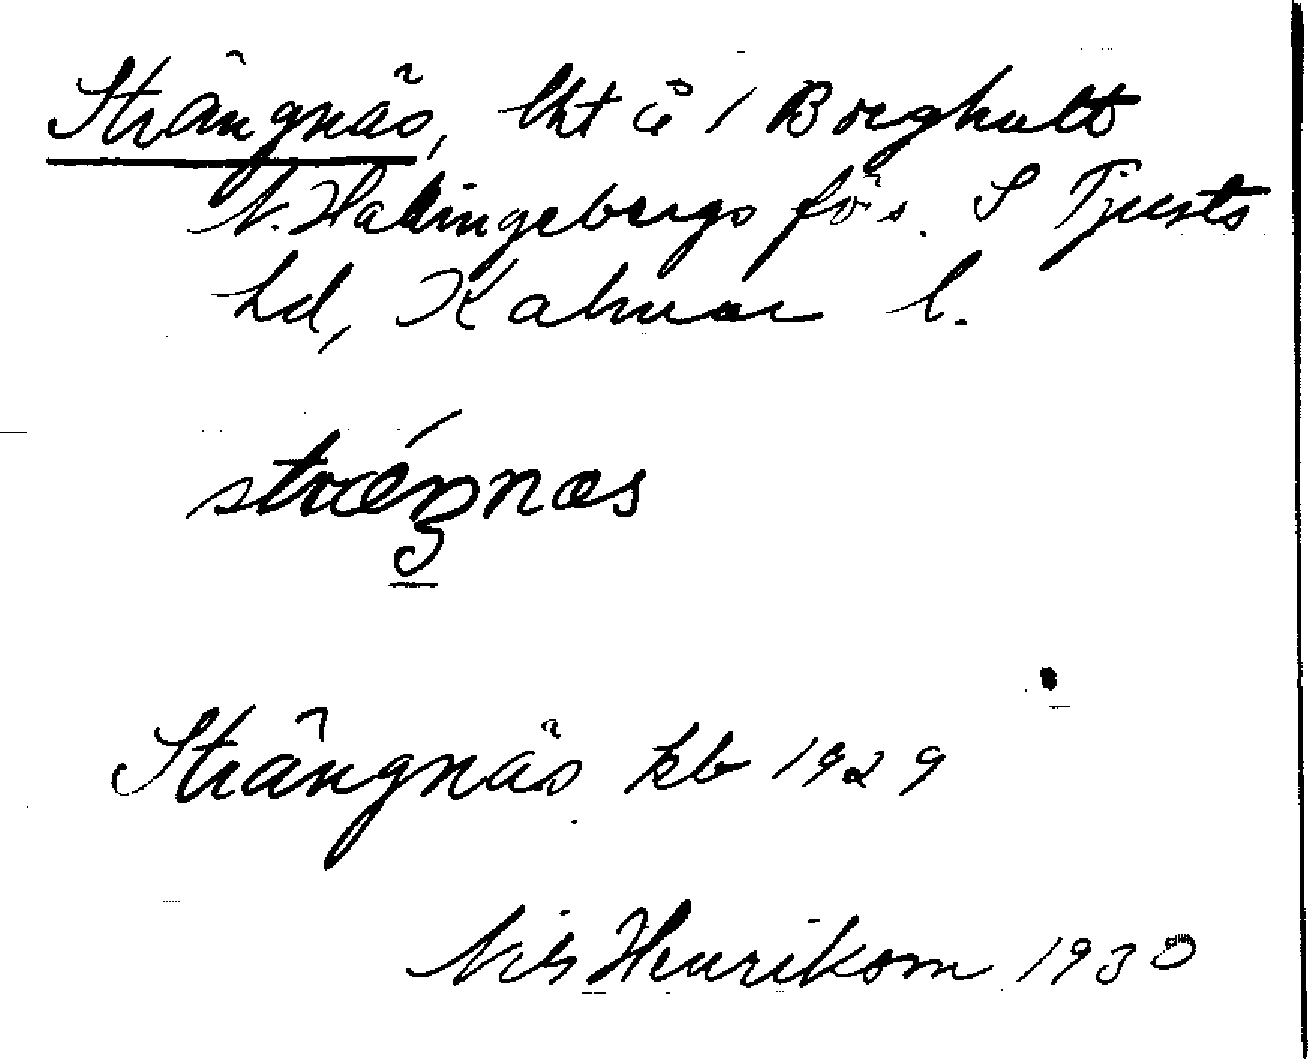 Strängnäs, lht å 1 Borghult
V. Hallingebergs förs. S Tjusts
hd, Kalmar l.
stræ´ŋnæs
Strängnäs kb 1929
Nils Henrikson 1930